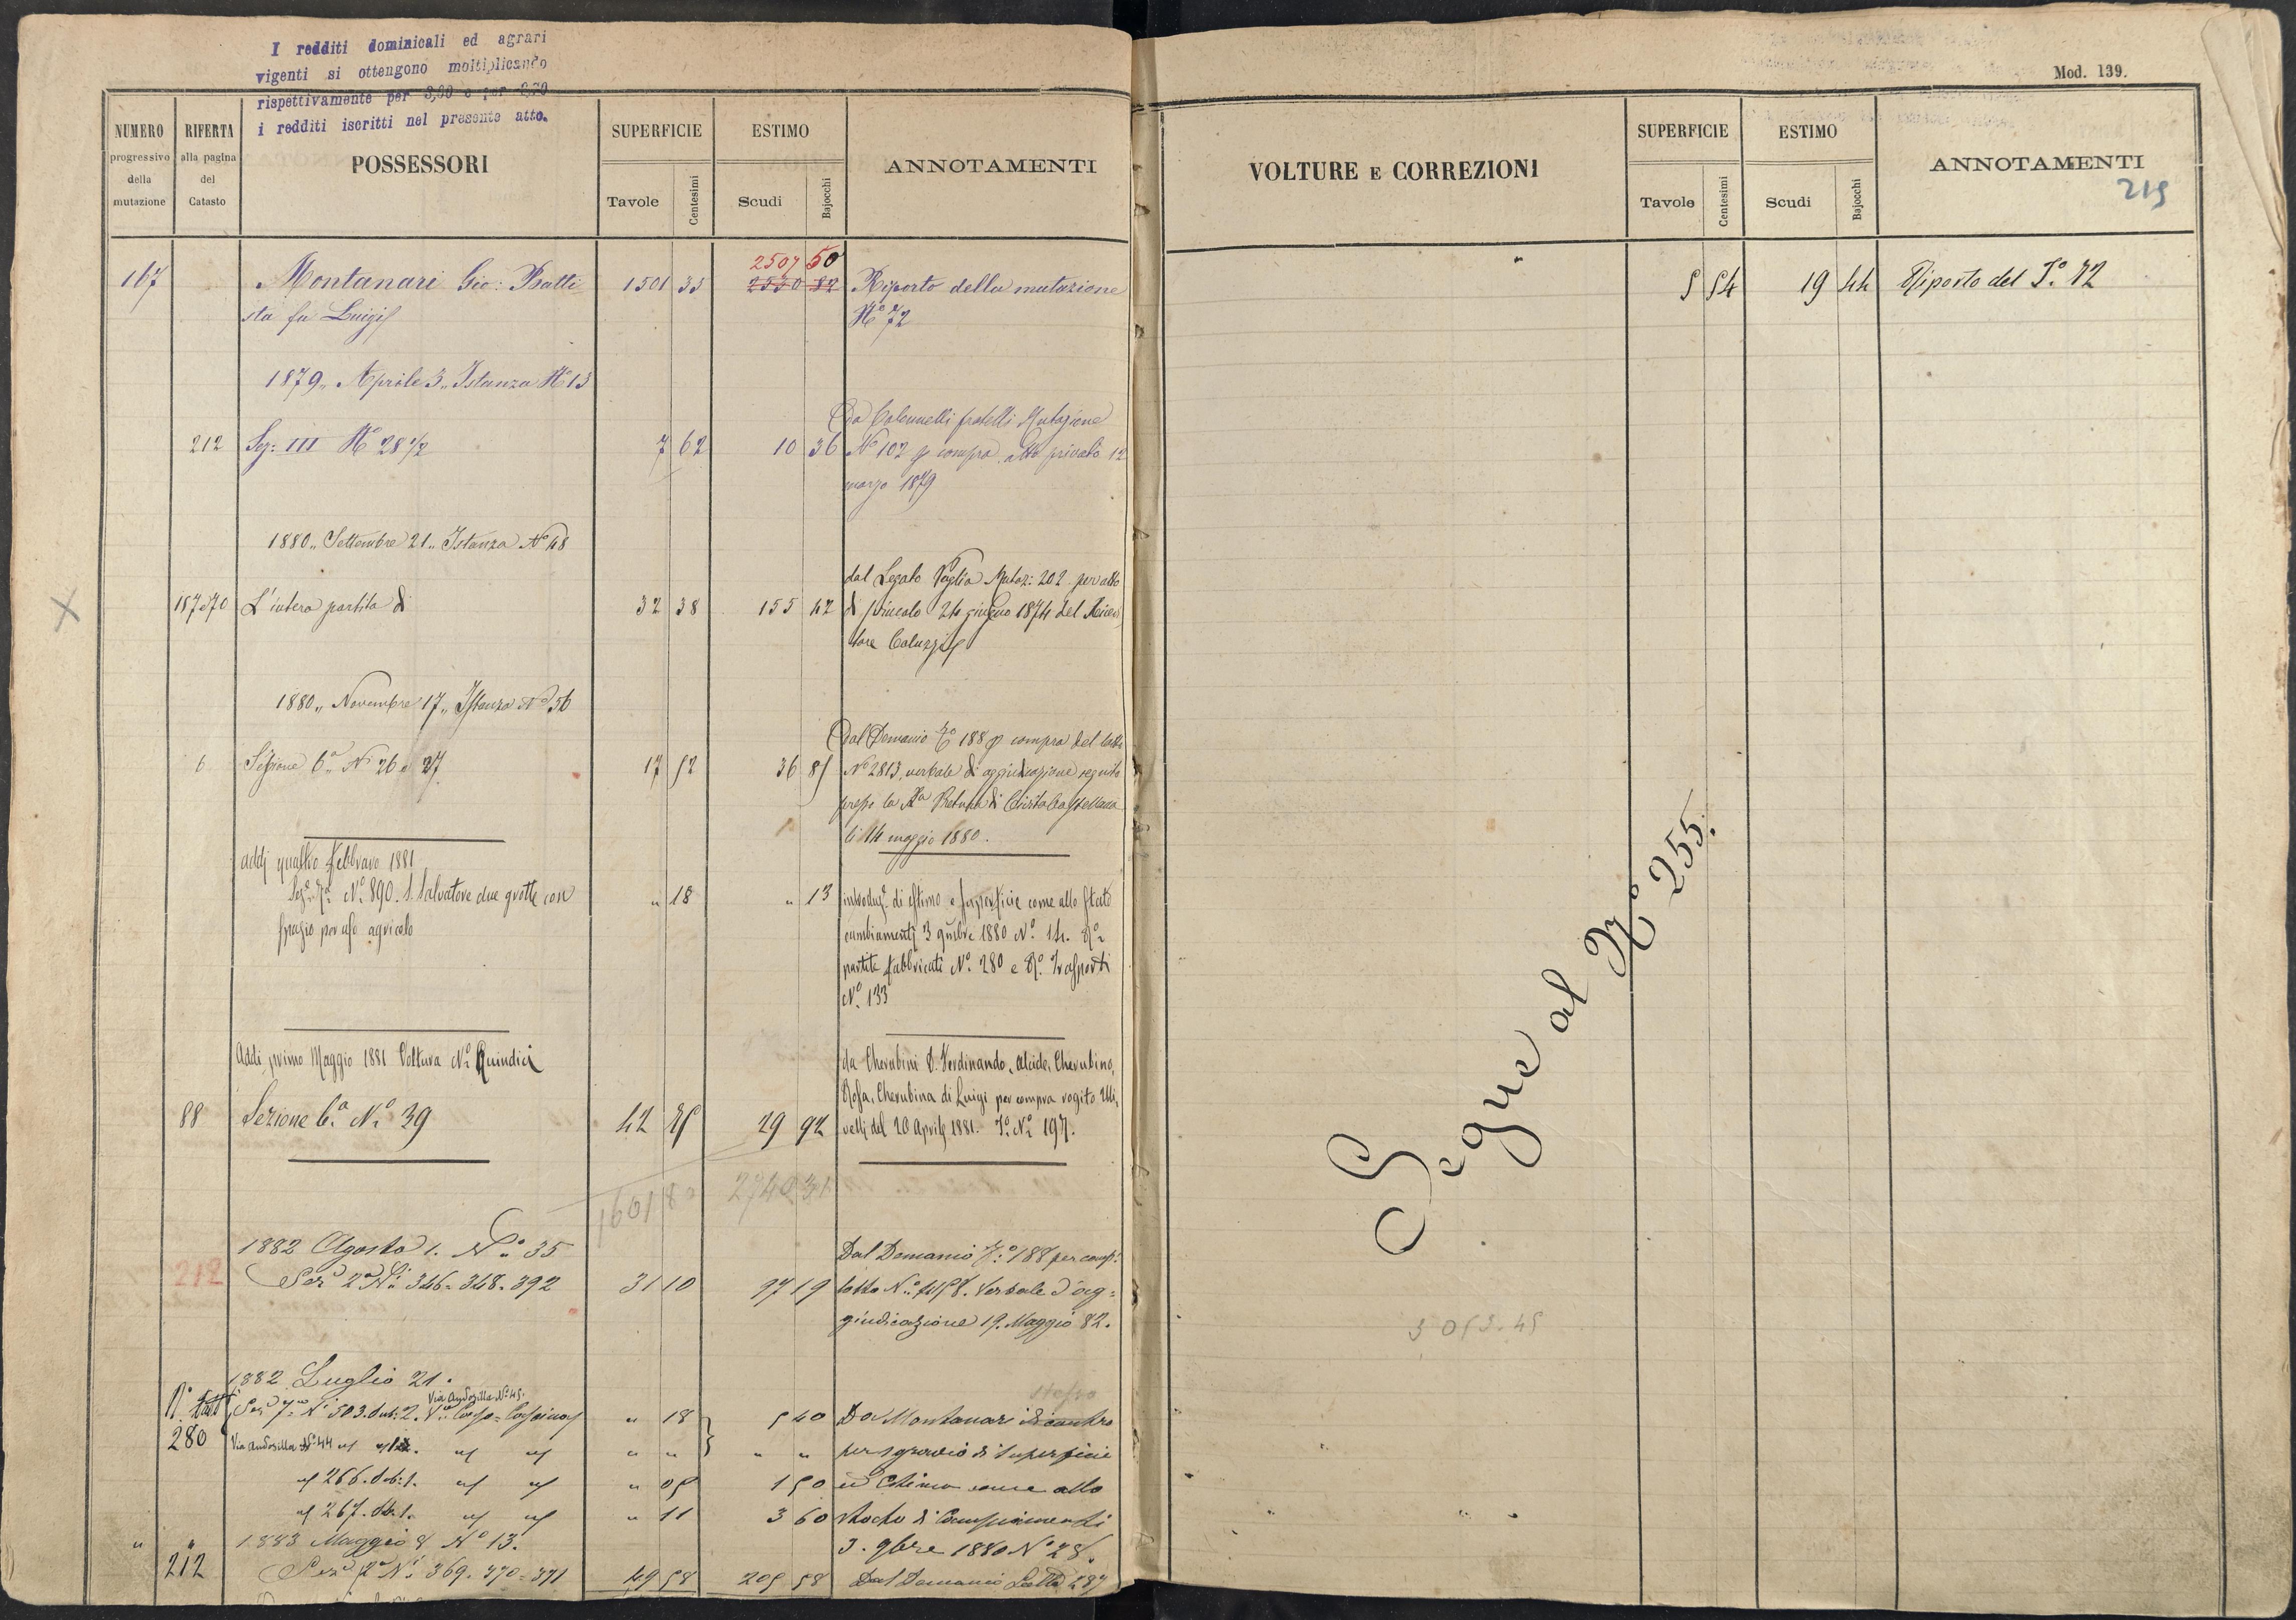 I redditi dominicali ed agrari
vigenti si ottengono moltiplicando
rispettivamente per 3,60 e per
i redditi iscritti nel presente atto.
NUMERO progressivo della mutazione
RIFERTA alla pagina del Catasto
POSSESSORI
SUPERFICIE
Tavole Centesimi
ESTIMO
Scudi Bajocchi
ANNOTAMENTI
167 Montanari Gio: Batti 1501 33 2507 50 2530 82 Riporto della mutazione
sta fu Luigi N.° 72
1879 Aprile 3 Istanza N° 13
Da Colonnelli fratelli Mutazione
212 Sez: III N° 28 1/2 7 62 10 36 N° 102 p compra atto privato 12
marzo 1879
1880 Settembre 21 Istanza N° 48
dal Legato Vaglia Mutaz: 202 per atto
187 e 70 L'intera partita di 32 38 155 42 di svincolo 24 giugno 1874 del Ricevi
tore Coluzzi
1880 Novembre 17 Istanza N° 56
Dal Demanio T° 188 p compra del lotto
6 Sezione 6a N° 26 e 27 17 52 36 85 N° 2813, verbale di aggiudicazione seguito
presso la Ra Pretura di Civita Castellana
li 14 maggio 1880.
addi quattro Febbraro 1881
Sez.e 7a N.° 890. S. Salvatore due grotte con " 18 " 13 introduz.e di estimo e superficie come allo Stato
spazio per uso agricolo cambiamenti 3 9mbre 1880 N.° 14. R.o
partite fabbricati N.° 280 e R.o Trasporti
N.° 133
Addi primo Maggio 1881 Voltura N.° Quindici
da Cherubini D. Ferdinando, Alcide, Cherubino,
Rosa, Cherubina di Luigi per compra rogito Uli
88 Sezione 6.a N.° 39 42 25 29 92 velli del 20 Aprile 1881. T.° N.° 197.
1601 80 2740 31
1882 Agosto 1. N.° 35 Dal Demanio T.° 188 per comp.
212 Sez.e 2a N.i 346=348=392 31 10 97 19 lotto N.° Verbale d'ag=
giudicazione 19. Maggio 82.
1882 Luglio 21.
Via Andosilla N.° 45.
N.° Sez.e 7.a N.° 503. sub: 2. " 18 5 40 Da Montanari stesso
280 Via Andosilla N.° 44 " " " " per sgravio di Superficie
" 266. sub: 1. " 05 1 50 ed Estimo come allo
" 267. sub: 1. " 11 3 60 Stato di Cambiamenti
1883 Maggio 8 N.° 13. 3. 9bre 1880 N.° 28.
212 Sez.e 2a N.i 369. 370=371 49 58 205 58 Dal Demanio Lotto 287
Mod. 139.
VOLTURE E CORREZIONI
SUPERFICIE
Tavole Centesimi
ESTIMO
Scudi Bajocchi
ANNOTAMENTI
219
5 54 19 44 Riporto del T.° 72
Segue al N.° 255.
3053.45